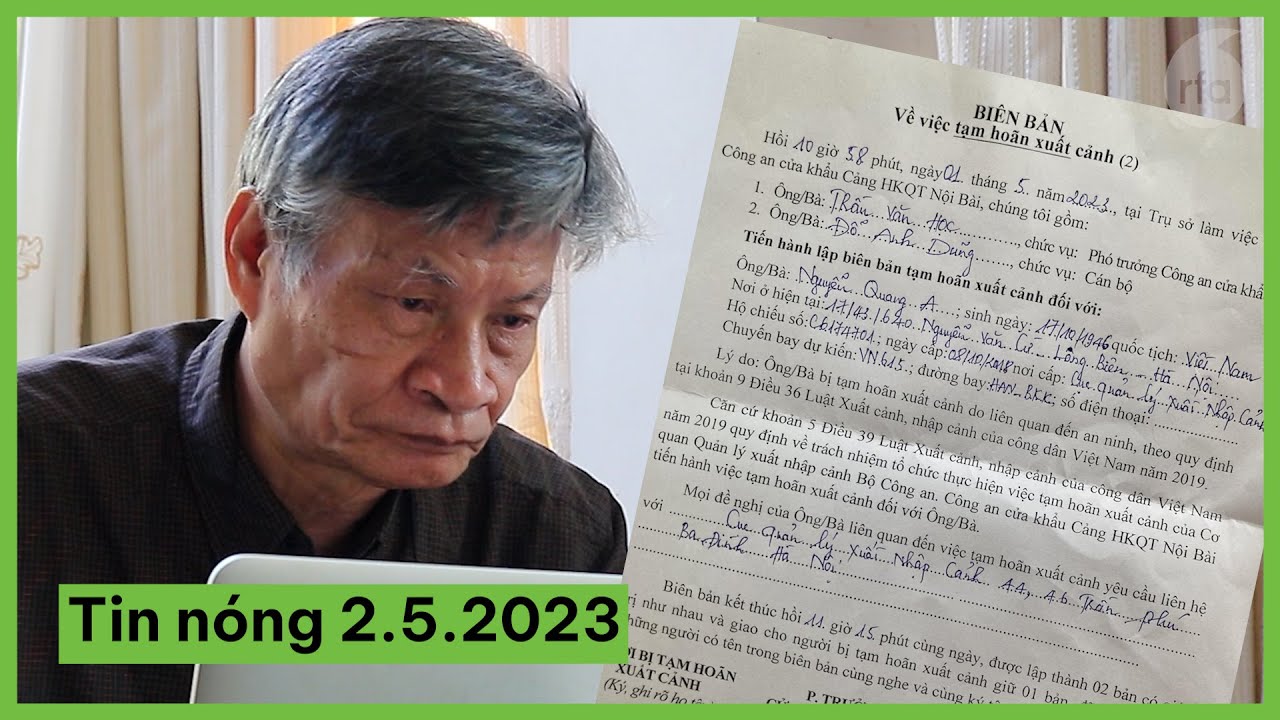 rfa
BIÊN BẢN
Về việc tạm hoãn xuất cảnh (2)
Hồi 10 giờ 58 phút, ngày 01 tháng 5 năm 2023, tại Trụ sở làm việc
Công an cửa khẩu Cảng HKQT Nội Bài, chúng tôi gồm:
1. Ông/Bà: Trần Văn Học, chức vụ: Phó trưởng Công an cửa khẩ
2. Ông/Bà: Đỗ Anh Dũng, chức vụ: Cán bộ
Tiến hành lập biên bản tạm hoãn xuất cảnh đối với:
Ông/Bà: Nguyễn Quang A; sinh ngày: 17/10/1946 quốc tịch: Việt Nam
Nơi ở hiện tại: 171/43/640 Nguyễn Văn Cừ Long Biên Hà Nội
Hộ chiếu số: C6174701; ngày cấp: 08/10/2018 nơi cấp: Cục quản lý Xuất Nhập Cảnh
Chuyến bay dự kiến: VN615; đường bay: HAN_BKK; số điện thoại:
Lý do: Ông/Bà bị tạm hoãn xuất cảnh do liên quan đến an ninh, theo quy định
tại khoản 9 Điều 36 Luật Xuất cảnh, nhập cảnh của công dân Việt Nam năm 2019.
Căn cứ khoản 5 Điều 39 Luật Xuất cảnh, nhập cảnh của công dân Việt Nam
năm 2019 quy định về trách nhiệm tổ chức thực hiện việc tạm hoãn xuất cảnh của Cơ
quan Quản lý xuất nhập cảnh Bộ Công an. Công an cửa khẩu Cảng HKQT Nội Bài
tiến hành việc tạm hoãn xuất cảnh đối với Ông/Bà.
Mọi đề nghị của Ông/Bà liên quan đến việc tạm hoãn xuất cảnh yêu cầu liên hệ
với Cục quản lý Xuất Nhập Cảnh 44, 46 Trần Phú
Ba Đình Hà Nội
Biên bản kết thúc hồi 11 giờ 15 phút cùng ngày, được lập thành 02 bản có
trị như nhau và giao cho người bị tạm hoãn xuất cảnh giữ 01 bản,
những người có tên trong biên bản cùng nghe và cùng ký
I BỊ TẠM HOÃN
XUẤT CẢNH
(Ký, ghi rõ họ
P. TRƯỞ
Tin nóng 2.5.2023